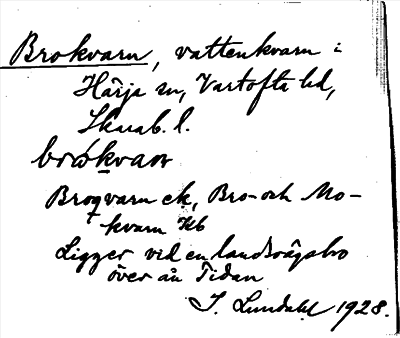 Brokvarn, vattenkvarn i
Härja sn, Vartofta hd,
Skarab. l.
brókvaṉ
Broqvarn ek, Bro- och Mo-
kvarn Kb
Ligger vid en landsvägsbro
över ån Tidan
I. Lundahl 1928.